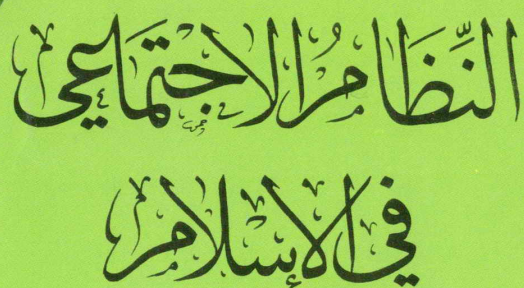 النِّظَامُ الاجْتِمَاعِي
في الإسْلام